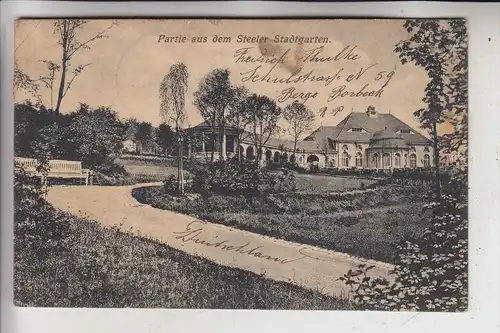 Partie aus dem Steeler Stadtgarten.
Heinrich Thulke
Schulstrasse N 59
Berge Borbeck
Deutschland